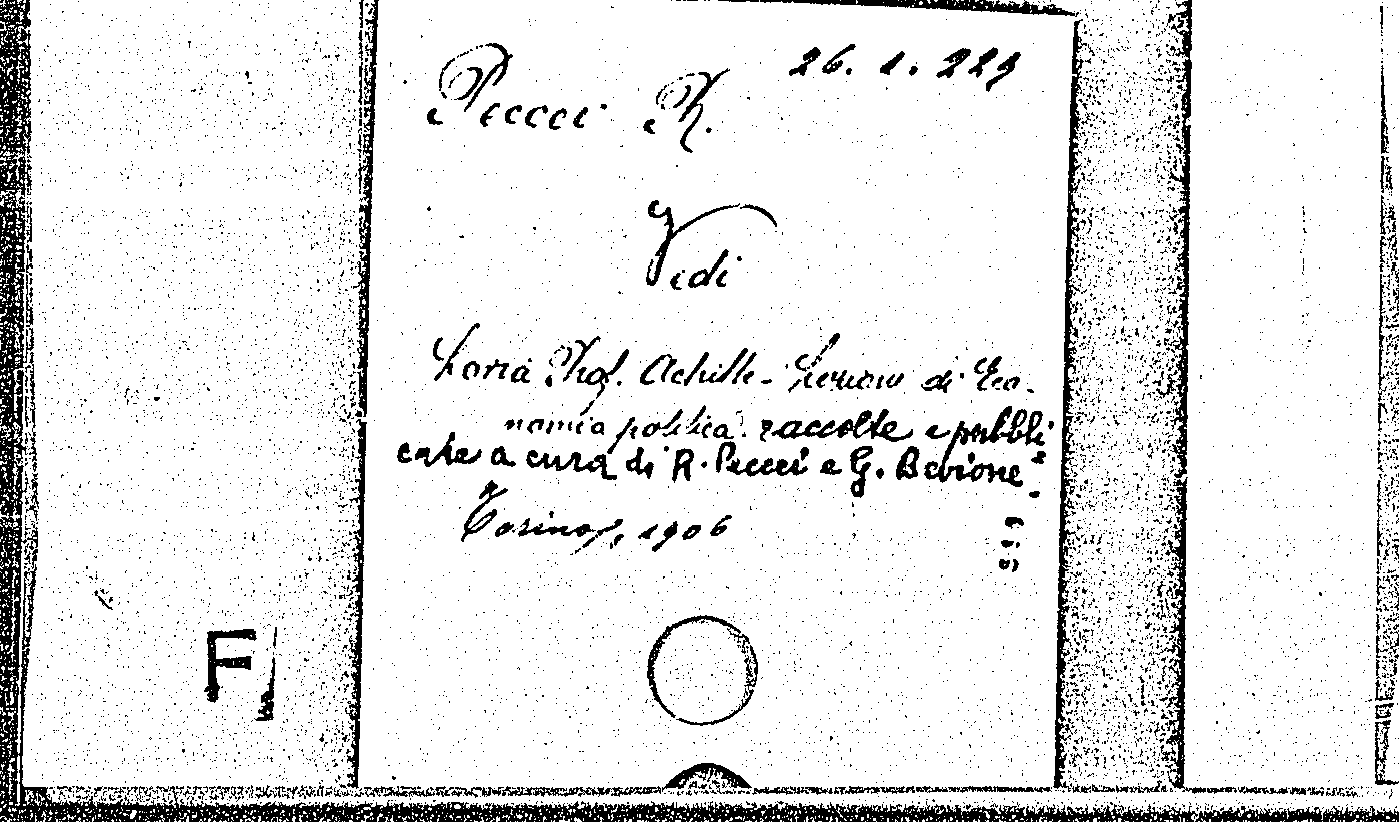 26. 1. 229
Peccei R.
Vedi
Loria Prof. Achille - Lezioni di Eco-
nomia politica. raccolte e pubbli
cate a cura di R. Peccei e G. Bevione
Torino, 1906
F